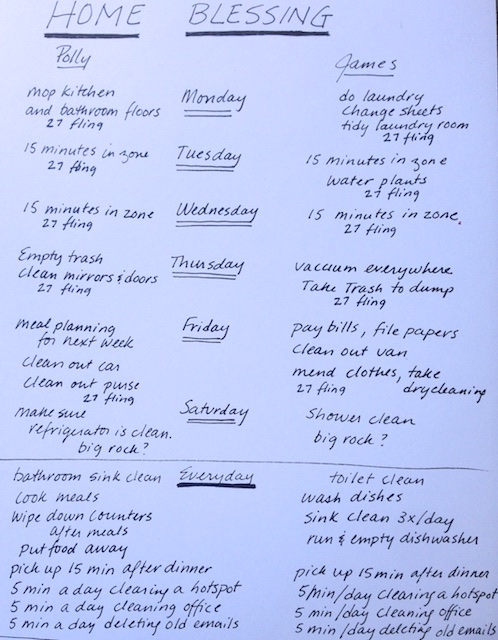 HOME BLESSING
Polly
James
Monday
mop kitchen
and bathroom floors
27 fling
do laundry
change sheets
tidy laundry room
27 fling
Tuesday
15 minutes in zone
27 fling
15 minutes in zone
water plants
27 fling
Wednesday
15 minutes in zone
27 fling
15 minutes in zone.
27 fling
Thursday
Empty trash
clean mirrors & doors
27 fling
vacuum everywhere
Take Trash to dump
27 fling
Friday
meal planning
for next week
clean out car
clean out purse
27 fling
pay bills, file papers
clean out van
mend clothes, take
27 fling drycleaning
Saturday
make sure
refrigerator is clean.
big rock?
Shower clean
big rock?
Everyday
bathroom sink clean
cook meals
wipe down counters
after meals
put food away
pick up 15 min after dinner
5 min a day clearing a hotspot
5 min a day cleaning office
5 min a day deleting old emails
toilet clean
wash dishes
sink clean 3x/day
run & empty dishwasher
pick up 15 min after dinner
5 min/day clearing a hotspot
5 min/day cleaning office
5 min/day deleting old emails